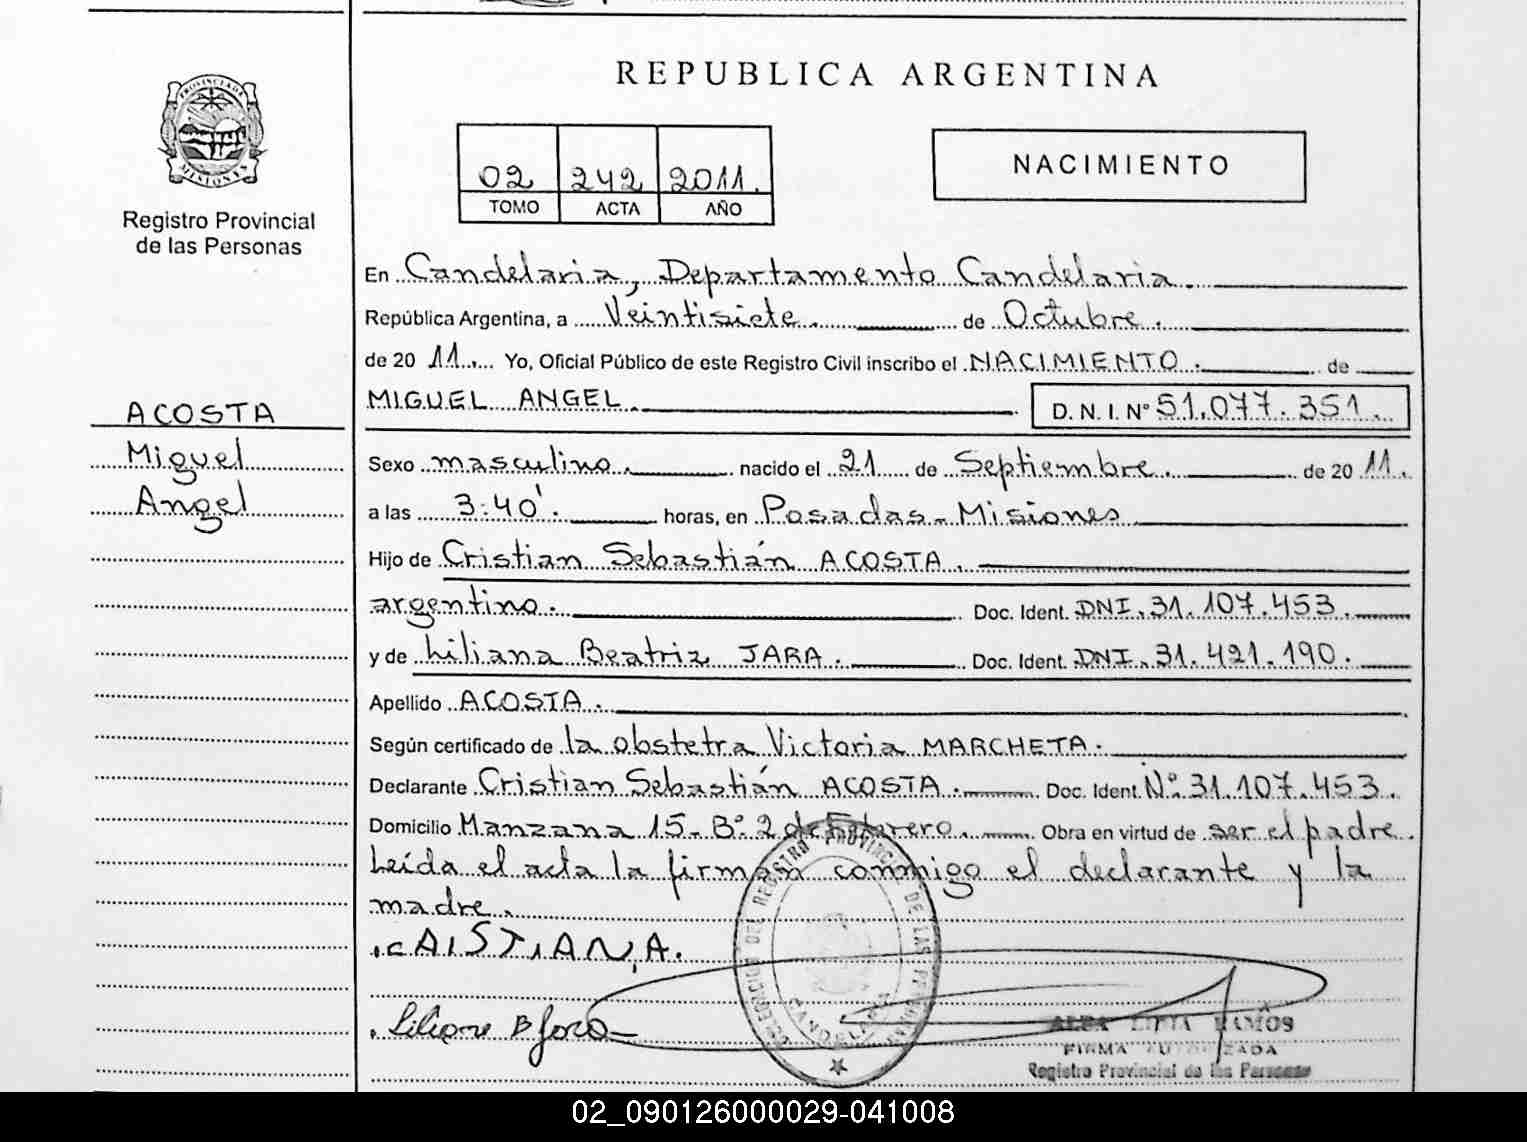 REPUBLICA ARGENTINA
PROVINCIA DE
MISIONES
Registro Provincial
de las Personas
02 242 2011.
TOMO ACTA AÑO
NACIMIENTO
ACOSTA
Miguel
Angel
En Candelaria, Departamento Candelaria.
República Argentina, a Veintisiete. de Octubre.
de 20 11. Yo, Oficial Público de este Registro Civil inscribo el NACIMIENTO. de
MIGUEL ANGEL. D. N. I. Nº 51.077.351.
Sexo masculino. nacido el 21 de Septiembre. de 20 11.
a las 3:40'. horas, en Posadas - Misiones
Hijo de Cristian Sebastián ACOSTA.
argentino. Doc. Ident. DNI. 31.107.453.
y de Liliana Beatriz JARA. Doc. Ident. DNI. 31.421.190.
Apellido ACOSTA.
Según certificado de la obstetra Victoria MARCHETA.
Declarante Cristian Sebastián ACOSTA. Doc. Ident. Nº 31.107.453.
Domicilio Manzana 15 - Bº 2 de Febrero. Obra en virtud de ser el padre.
Leída el acta la firman conmigo el declarante y la
madre.
CAISTIAN, A.
Liliana B Jara
DELEGACION DEL REGISTRO PROVINCIAL DE LAS PERSONAS
CANDELARIA
ALBA LIDIA RAMOS
FIRMA AUTORIZADA
Registro Provincial de las Personas
02_090126000029-041008